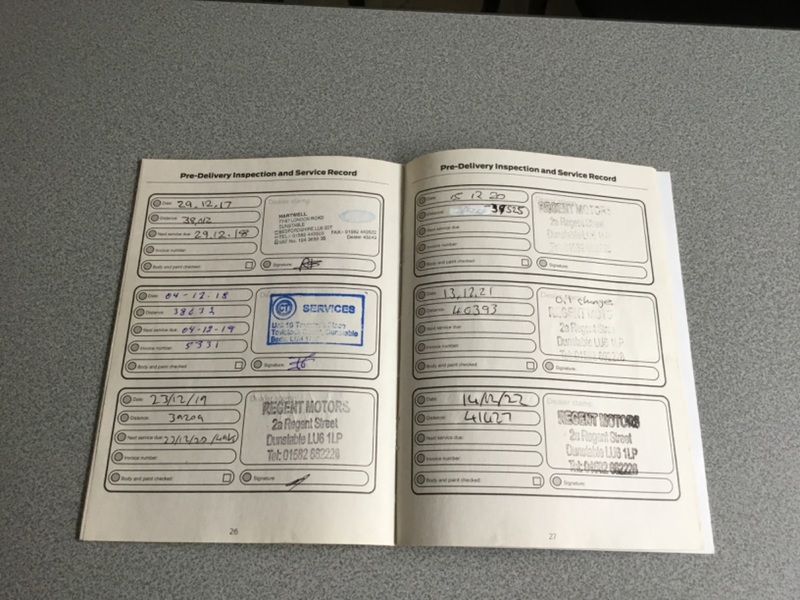 Pre-Delivery Inspection and Service Record
Date: 29.12.17
Distance:
Next service due: 29.12.18
Invoice number:
Body and paint checked:
Dealer stamp:
HARTWELL
LONDON ROAD
DUNSTABLE
BEDFORDSHIRE LU6 3DT
Signature:
Date: 04-12-18
Distance: 38632
Next service due: 04-12-19
Invoice number: 5331
Body and paint checked:
CTI SERVICES
Signature:
Date: 23/12/19
Distance:
Next service due: 22/12/20
Invoice number:
Body and paint checked:
REGENT MOTORS
2a Regent Street
Dunstable LU6 1LP
Tel: 01582 662226
Signature:
26
Pre-Delivery Inspection and Service Record
Date: 15 12 20
Distance: 39525
Next service due:
Invoice number:
Body and paint checked:
REGENT MOTORS
2a Regent Street
Dunstable LU6 1LP
Signature:
Date: 13.12.21
Distance: 40393
Next service due:
Invoice number:
Body and paint checked:
REGENT MOTORS
2a Regent Street
Dunstable LU6 1LP
Signature:
Date: 14/12/22
Distance: 41427
Next service due:
Invoice number:
Body and paint checked:
Dealer stamp:
REGENT MOTORS
2a Regent Street
Dunstable LU6 1LP
Tel: 01582 662226
Signature:
27